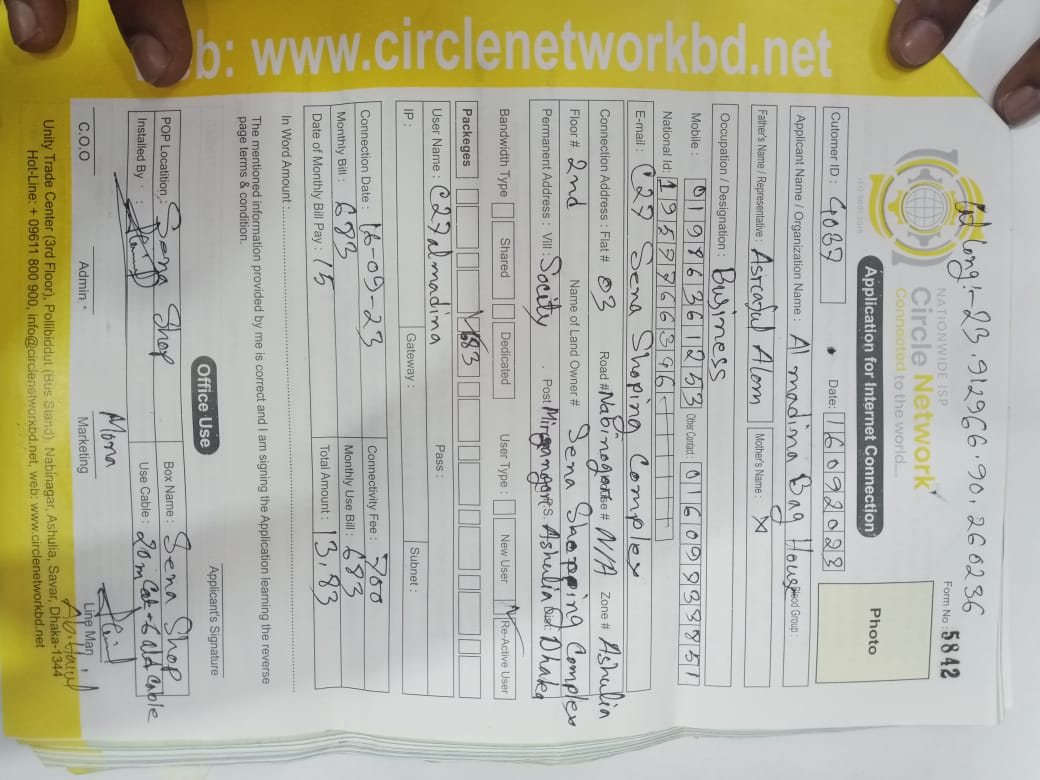 b: www.circlenetworkbd.net
long:-23.912966.90.260236
NATIONWIDE ISP
Circle Network
Connected to the world....
ISO 9001:2015
Form No : 5842
Application for Internet Connection
Photo
Cutomer ID : 4037 Date: 16092023
Applicant Name / Organization Name : Al madina Bag House Blood Group :
Father's Name / Representative : Asraful Alom Mother's Name : X
Occupation / Designation : Business
Mobile : 01986361253 Other Contact : 01609933851
National Id: 19577663396
E-mail : C27 Sena Shoping Complex
Connection Address : Flat # 03 Road # Nabinogor House # N/A Zone # Ashulia
Floor # 2nd Name of Land Owner # Sena Shopping Complex
Permanent Address : Vill : Socity Post Ashulia Dhaka
Bandwidth Type Shared Dedicated User Type : New User Re-Active User
Packeges 683
User Name : C27almadina Pass :
IP : Gateway : Subnet :
Connection Date : 16-09-23 Connectivity Fee : 700
Monthly Bill : 683 Monthly Use Bill : 683
Date of Monthly Bill Pay : 15 Total Amount : 13,83
In Word Amount :
The mentioned information provided by me is correct and I am signing the Application learning the reverse
page terms & condition.
Applicant's Signature
Office Use
POP Locatition : Sena Shop Box Name : Sena Shop
Installed By : Use Cable : 20m Cat-6 old Cable
Mona
C.O.O Admin Marketing Line Man
Unity Trade Center (3rd Floor), Pollibiddut (Bus Stand), Nabinagar, Ashulia, Savar, Dhaka-1344
Hot-Line: + 09611 800 900, info@circlenetworkbd.net, web: www.circlenetworkbd.net